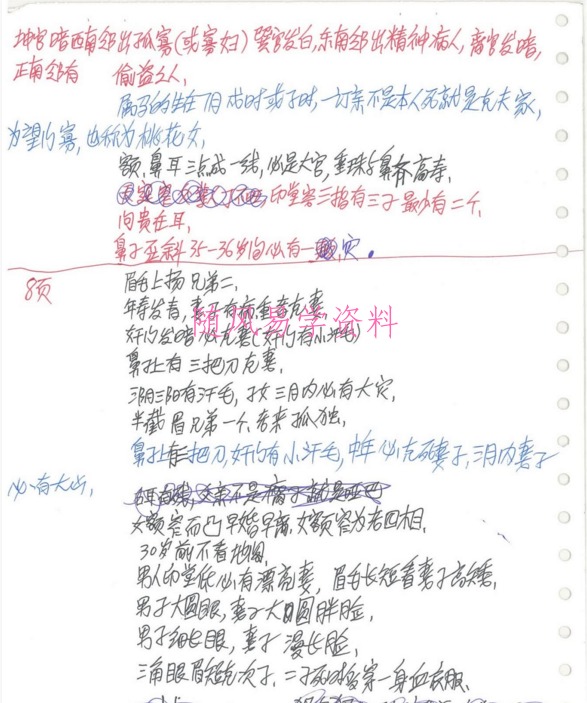 坤宫暗西南邻出孤寡(或寡妇)巽宫发白,东南邻出精神病人,离宫发暗,
正南邻有 偷盗之人,
属马的生在7月戌时或子时,一订亲不是本人死就是克夫家,
为望门寡,也称为桃花女,
额、鼻耳三点成一线,必是大官,垂珠与鼻齐高寿,
印堂容三指有三子最少有二个,
问贵在耳,
鼻子歪斜35-36岁间必有一灾.
8页
眉毛上扬兄弟二,
年寿发青,妻子有病重者克妻
奸门发暗必克妻(奸门有小汗毛)
随风易学资料
鼻上有三把刀克妻,
三阴三阳有汗毛,子女三月内必有大灾,
半截眉兄弟一个,老来孤独,
鼻上有三把刀,奸门有小汗毛,中年必克死妻子,三月内妻子
必有大灾,
女额窄而凸早婚早离,女额窄为老四相,
30岁前不看地阁,
男人印堂低必有漂亮妻,眉毛长短看妻子高矮,
男子大圆眼,妻子大圆胖脸,
男子细长眼,妻子漫长脸,
三角眼眉短克次子,二子死时必穿一身血衣服,